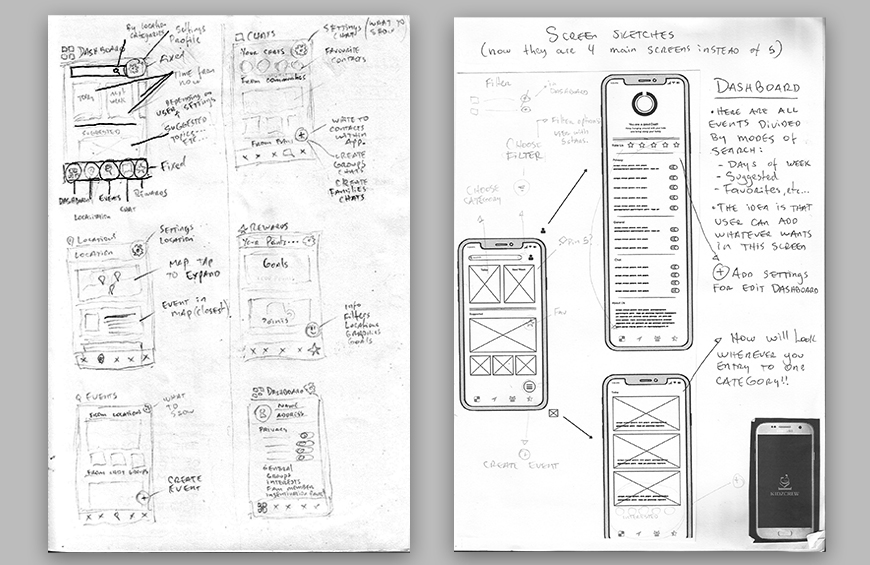 By location
categories
Settings
Profile
DASHBOARD
Fixed
TIME FROM
NOW
TODAY
NEXT
WEEK
DEPENDING ON
USER & SETTINGS
SUGGESTED
SUGGESTED
TOPICS...
ETC...
Fixed
DASHBOARD
LOCALIZATION
EVENTS
CHAT
REWARDS
CHATS
SETTINGS
CHAT
(WHAT TO
SHOW)
YOUR CHATS
FAVOURITE
CONTACTS
FROM COMMUNITIES
WRITE TO
CONTACTS
WITHIN
APP.
CREATE
GROUPS
CHATS
CREATE
FAMILIES
CHATS
LOCATIONS
LOCATION
SETTINGS
LOCATION
MAP TAP
TO EXPAND
EVENT IN
MAP (CLOSEST)
REWARDS
Your Points...
GOALS
POINTS
INFO
FILTERS
LOCATIONS
GOALS
EVENTS
FROM LOCATIONS
WHAT
TO
SHOW
CREATE
EVENT
DASHBOARD
NAME
ADDRESS
PRIVACY
GENERAL
GROUPS
INTERESTS
FAM MEMBER
SCREEN SKETCHES
(NOW THEY ARE 4 MAIN SCREENS INSTEAD OF 5)
Filter
in
DASHBOARD
CHOOSE
FILTER
CHOOSE
CATEGORY
CREATE EVENT
Today
Next Week
Suggested
Fav
Rate Us
Privacy
General
Chat
About Us
Today
DASHBOARD
• HERE ARE ALL
EVENTS DIVIDED
BY MODES OF
SEARCH:
- DAYS OF WEEK
- SUGGESTED
- FAVORITES, etc...
• THE IDEA IS THAT
USER CAN ADD
WHATEVER WANTS
IN THIS SCREEN
+ ADD SETTINGS
FOR EDIT DASHBOARD
HOW WILL LOOK
WHEREVER YOU
ENTRY TO ONE
CATEGORY!!
KIDZCREW